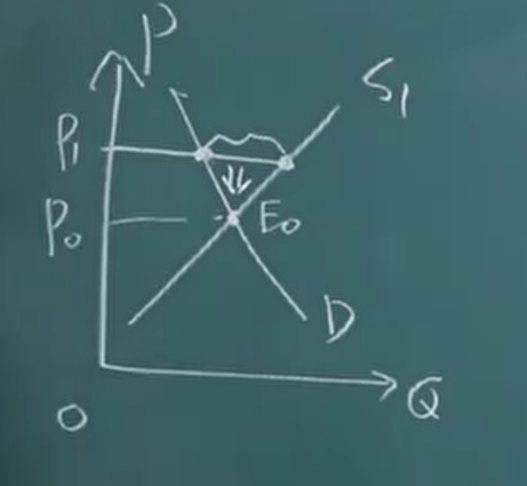 P
S₁
P₁
P₀
E₀
D
Q
O